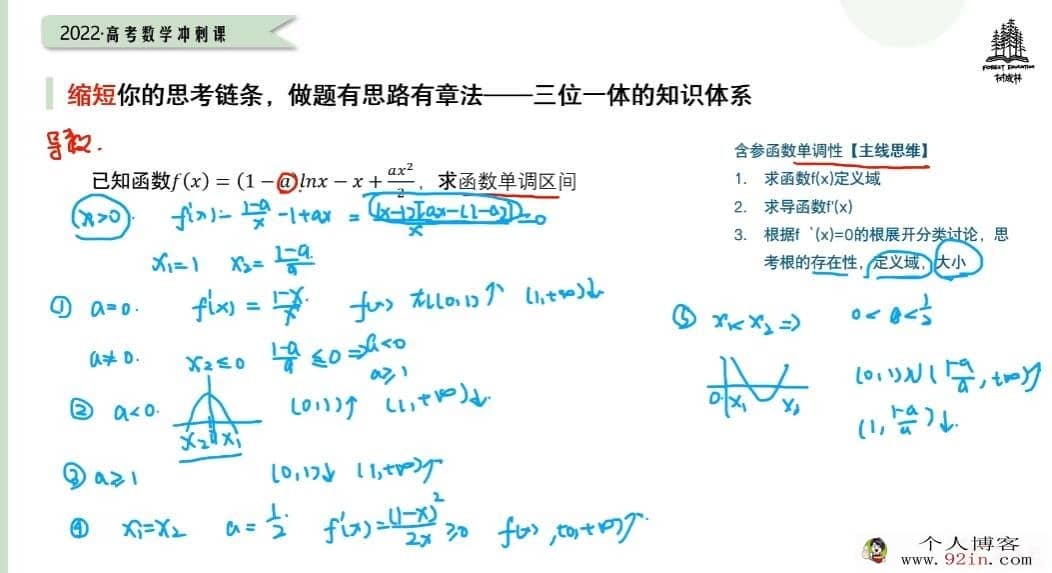 2022·高考数学冲刺课
FOREST EDUCATION
树成林
缩短你的思考链条，做题有思路有章法——三位一体的知识体系
导数.
已知函数f(x) = (1 − a)lnx − x + ax²/2，求函数单调区间
(x>0) f'(x) = (1-a)/x -1+ax = (x-1)[ax-(1-a)]/x =0
x₁=1 x₂= (1-a)/a
① a=0. f'(x) = (1-x)/x. f(x) 在(0,1)↑ (1,+∞)↓
a≠0. x₂≤0 (1-a)/a ≤0 ⇒ a<0
a≥1
② a<0. (0,1)↑ (1,+∞)↓.
x₂ x₁
③ a≥1 (0,1)↓ (1,+∞)↑
④ x₁=x₂ a=1/2 f'(x)=(1-x)²/2x ≥0 f(x),(0,+∞)↑.
含参函数单调性【主线思维】
1. 求函数f(x)定义域
2. 求导函数f'(x)
3. 根据f｀(x)=0的根展开分类讨论，思
考根的存在性，定义域，大小
⑤ x₁<x₂ ⇒ 0<a<1/2
0 x₁ x₂
(0,1)∪((1-a)/a,+∞)↑
(1,(1-a)/a)↓.
个人博客
www.92in.com